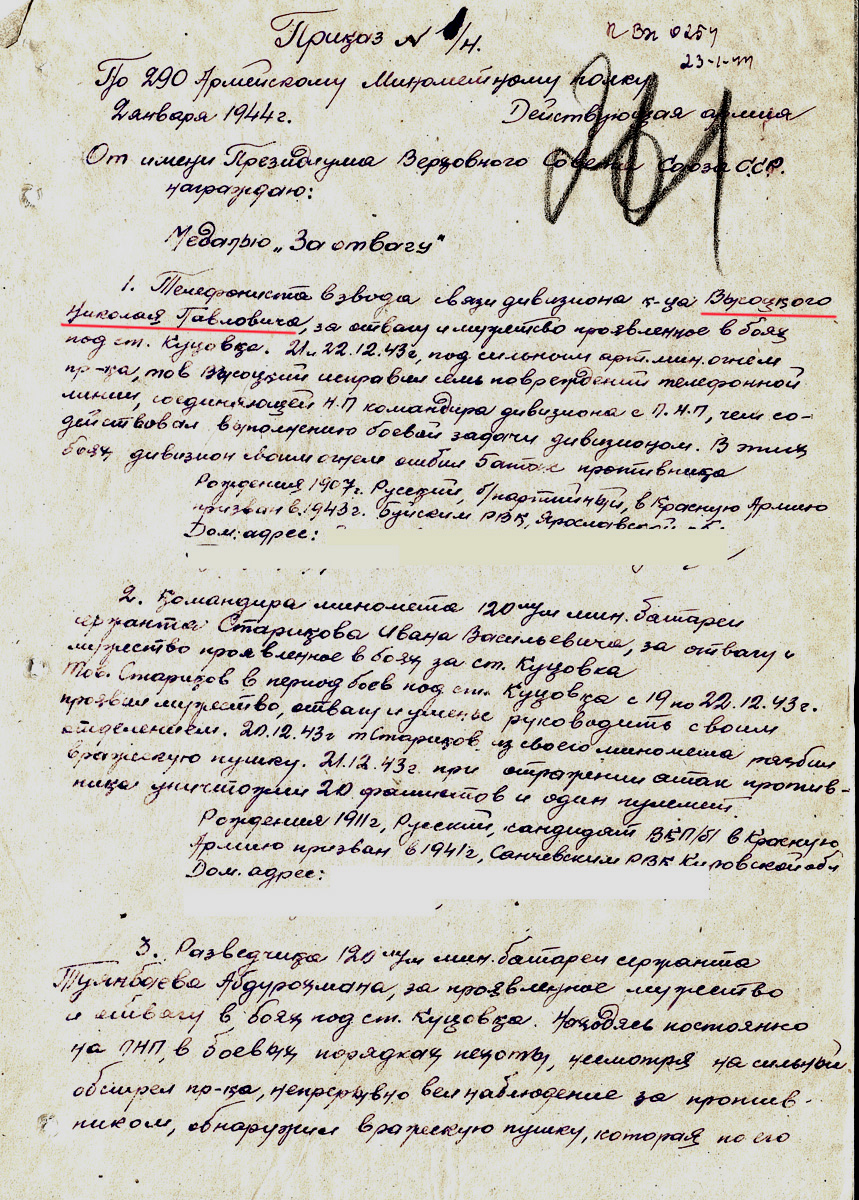 Приказ N 1/н.
п вх 0254
23-1-44
По 290 Армейскому Минометному полку
2 января 1944 г. Действующая армия
261
От имени Президиума Верховного Совета Союза С.С.Р.
награждаю:
Медалью „За отвагу"
1. Телефониста взвода связи дивизиона к-ца Высоцкого
Николая Павловича, за отвагу и мужество проявленное в боях
под ст. Куцовка. 21 и 22.12.43г, под сильным арт. мин. огнем
пр-ка, тов Высоцкий исправил семь повреждений телефонной
линии, соединяющей Н.П командира дивизиона с П.Н.П, чем со-
действовал выполнению боевой задачи дивизионом. В этих
боях дивизион своим огнем отбил 5 атак противника
Рождения 1907г. Русский, б/партийный, в Красную Армию
призван в 1943г. Буйским РВК, Ярославской
Дом. адрес:
2. Командира миномета 120 м/м мин. батареи
сержанта Старикова Ивана Васильевича, за отвагу и
мужество проявленное в боях за ст. Куцовка
Тов. Стариков в период боев под ст. Куцовка с 19 по 22.12.43г.
проявил мужество, отвагу и уменье руководить своим
отделением. 20.12.43г т Стариков из своего миномета разбил
вражескую пушку. 21.12.43г. при отражении атак против-
ника уничтожил 20 фашистов и один пулемет.
Рождения 1911г, Русский, кандидат ВКП/б/ в Красную
Армию призван в 1941г, Санчевским РВК Кировской обл
Дом. адрес:
3. Разведчика 120 м/м мин. батареи сержанта
Туянбаева Абдурохмана, за проявленное мужество
и отвагу в боях под ст. Куцовка. Находясь постоянно
на ПНП, в боевых порядках пехоты, несмотря на сильный
обстрел пр-ка, непрерывно вел наблюдение за против-
ником, обнаружил вражескую пушку, которая по его